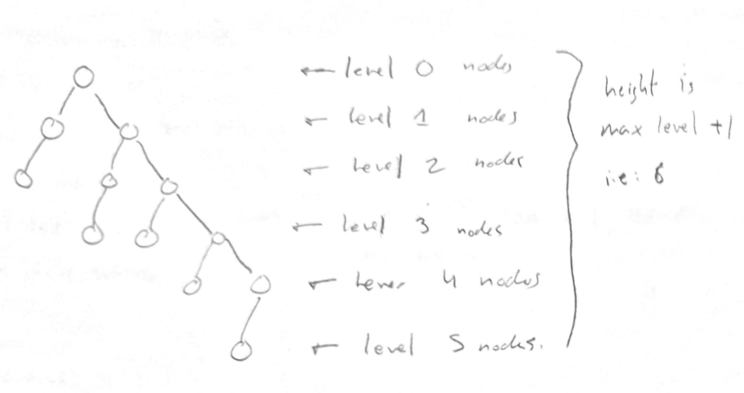 ← level 0 nodes
← level 1 nodes
← level 2 nodes
← level 3 nodes
← level 4 nodes
← level 5 nodes.
height is
max level +1
i.e: 6